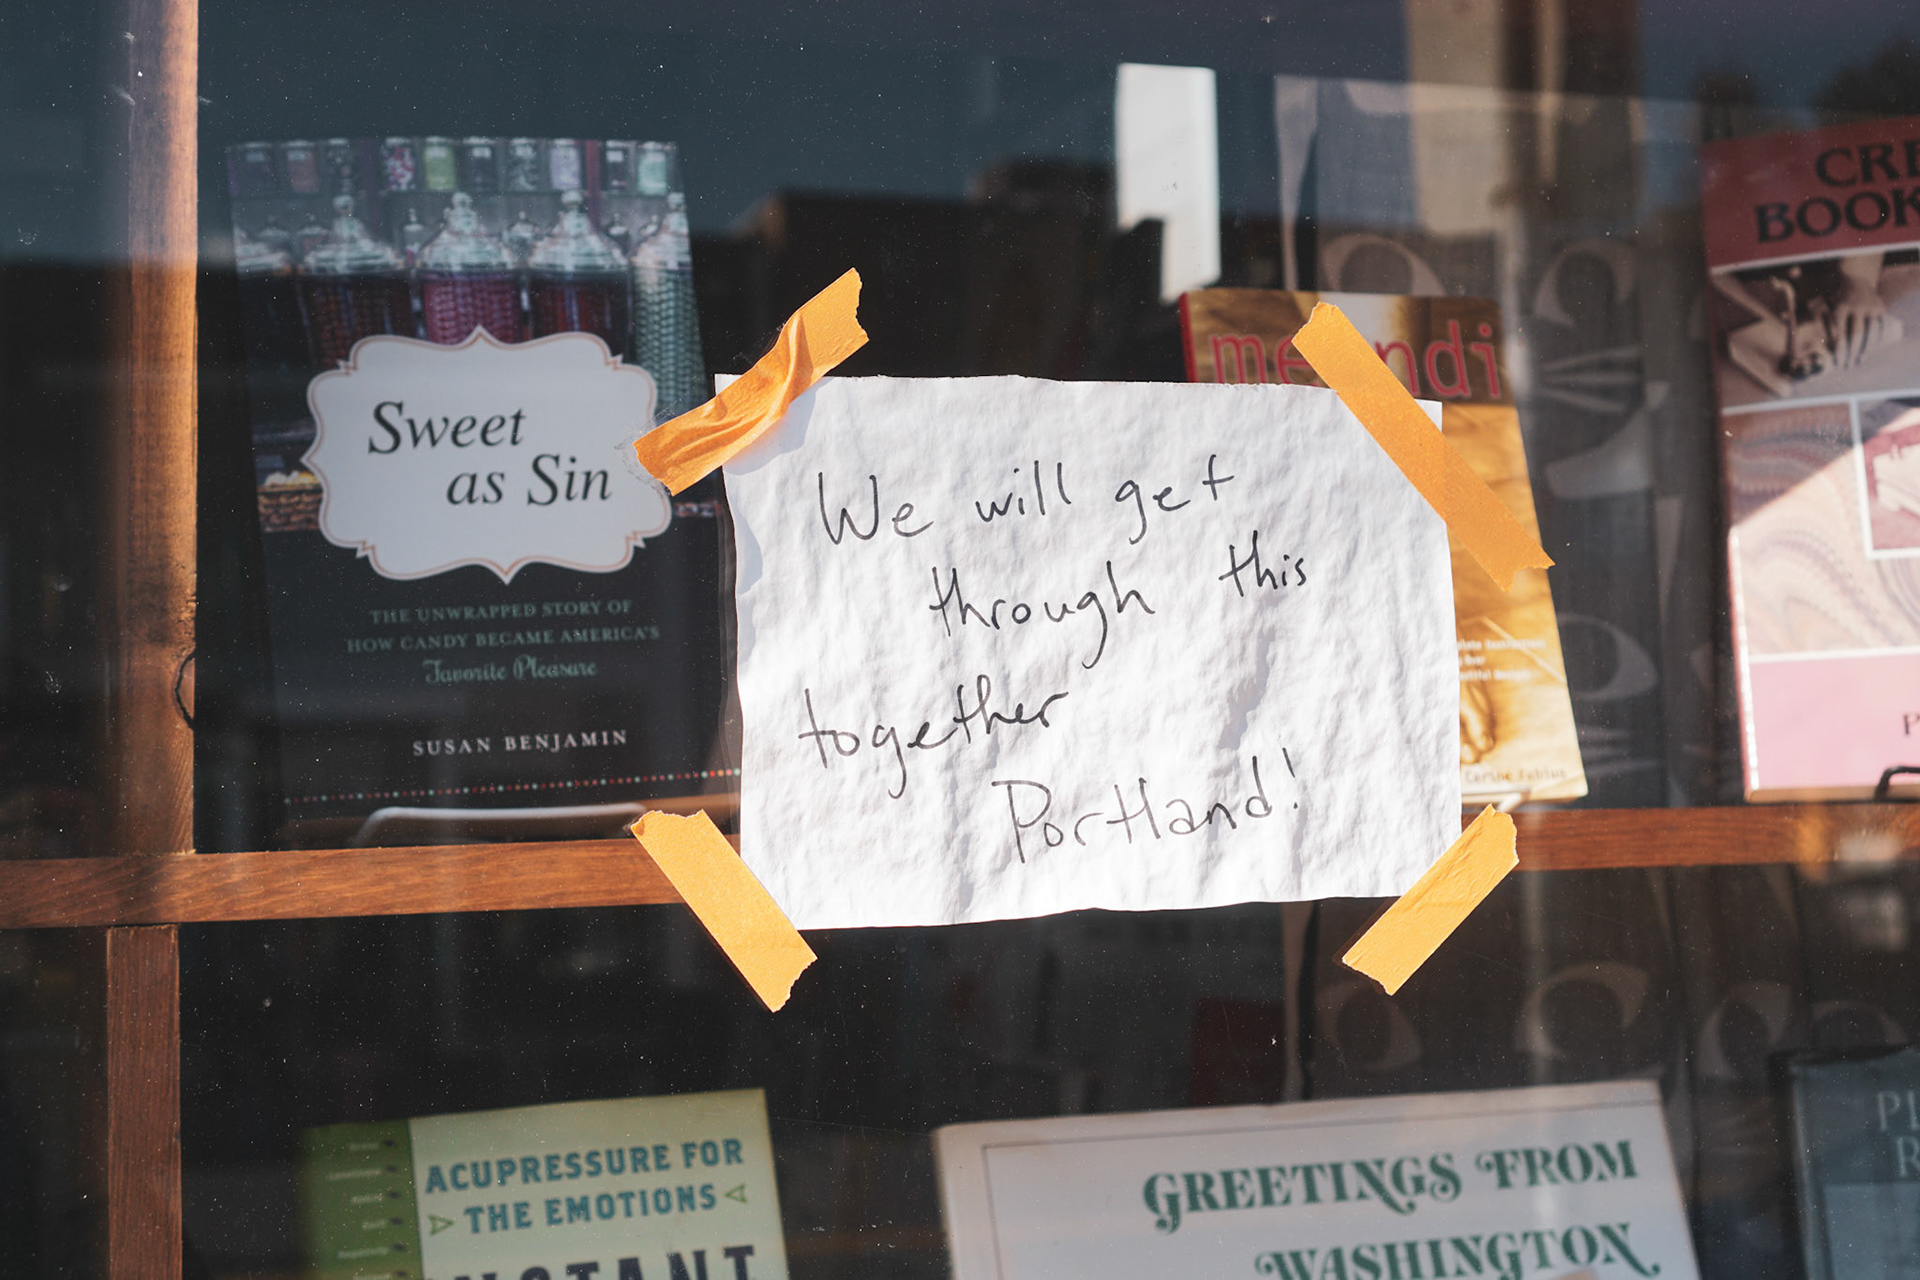 Sweet
as Sin
THE UNWRAPPED STORY OF
HOW CANDY BECAME AMERICA'S
Favorite Pleasure
SUSAN BENJAMIN
We will get
through this
together
Portland!
CRE
BOOK
Carine Fabius
ACUPRESSURE FOR
THE EMOTIONS
GREETINGS FROM
WASHINGTON